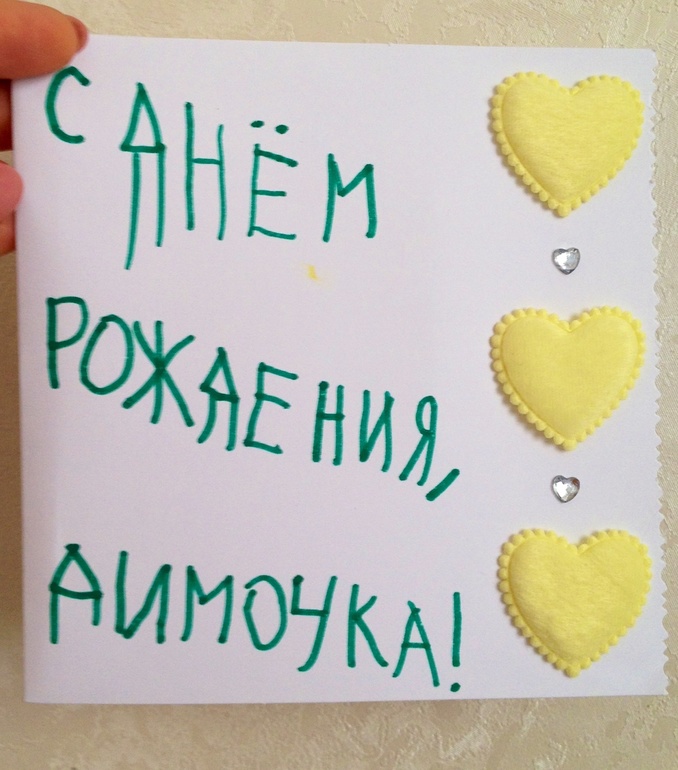 С ДНЁМ
РОЖДЕНИЯ,
ДИМОЧКА!